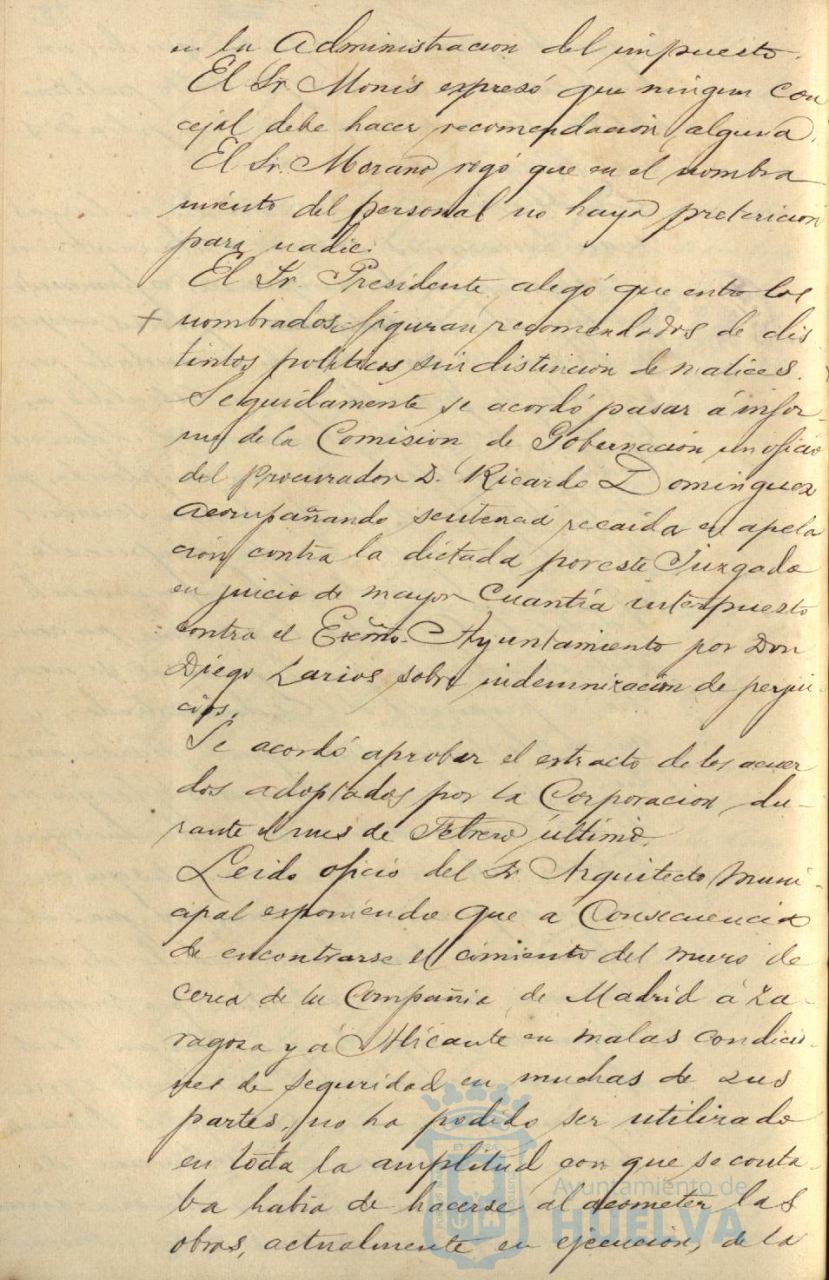 en la Administracion del impuesto.
El Sr. Monis expresó que ningun con
cejal debe hacer recomendación alguna.
El Sr. Morano rogó que en el nombra
miento del personal no haya pretericion
para nadie.
El Sr. Presidente, alegó que entre los
+ nombrados figuran recomendados de dis
tintos politicos sin distincion de matices.
Seguidamente se acordó pasar á infor-
me de la Comision de Gobernación un oficio
del Procurador D. Ricardo Dominguez
acompañando sentencia recaida en apela
ción contra la dictada por este Juzgado
en juicio de mayor cuantía interpuesto
contra el Excmo. Ayuntamiento por Don
Diego Larios sobre indemnización de perjui-
cios.
Se acordó aprobar el extracto de los acuer
dos adoptados por la Corporacion du-
rante el mes de Febrero último.
Leido oficio del Sr. Arquitecto Muni-
cipal exponiendo que a consecuencia
de encontrarse el cimiento del muro de
cerca de la Compañia de Madrid á Za-
ragoza y á Alicante en malas condicio-
nes de seguridad en muchas de sus
partes, no ha podido ser utilizado
en toda la amplitud con que se conta-
ba habia de hacerse al acometer las
obras, actualmente en ejecución, de la
Ayuntamiento de
HUELVA